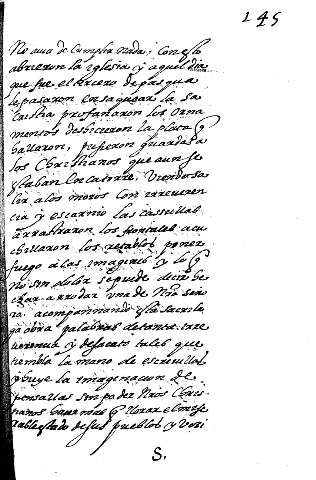 145
No aura de Cumplir nada; Con esto
abrieron la iglesia y aquel dia
que fue el tercero de pasqua
le pasaron en saquear la sa
cristia profanaron los orna
mentos deshicieron la plata q
hallaron, pusieron guardas a
los Christianos que aun se
estaban Vendosa
lir a los moros con irreveren
cia y escarnio las casullas
arrastraron los frontales acu
chillaron los retablos poner
fuego a las imagenes y lo q
no sin dolor se puede decir ve
echar a rrodar una de Nra Seño
ra. acompañando esta sacrile
ga obra palabras de tanta irre
verencia y desacato tales que
tiembla la mano de escrivillas
y huye la imaginacion de
pensallas sin poder Nros Chris
tianos hacer mas q llorar el
table estado de sus pueblos y
S.